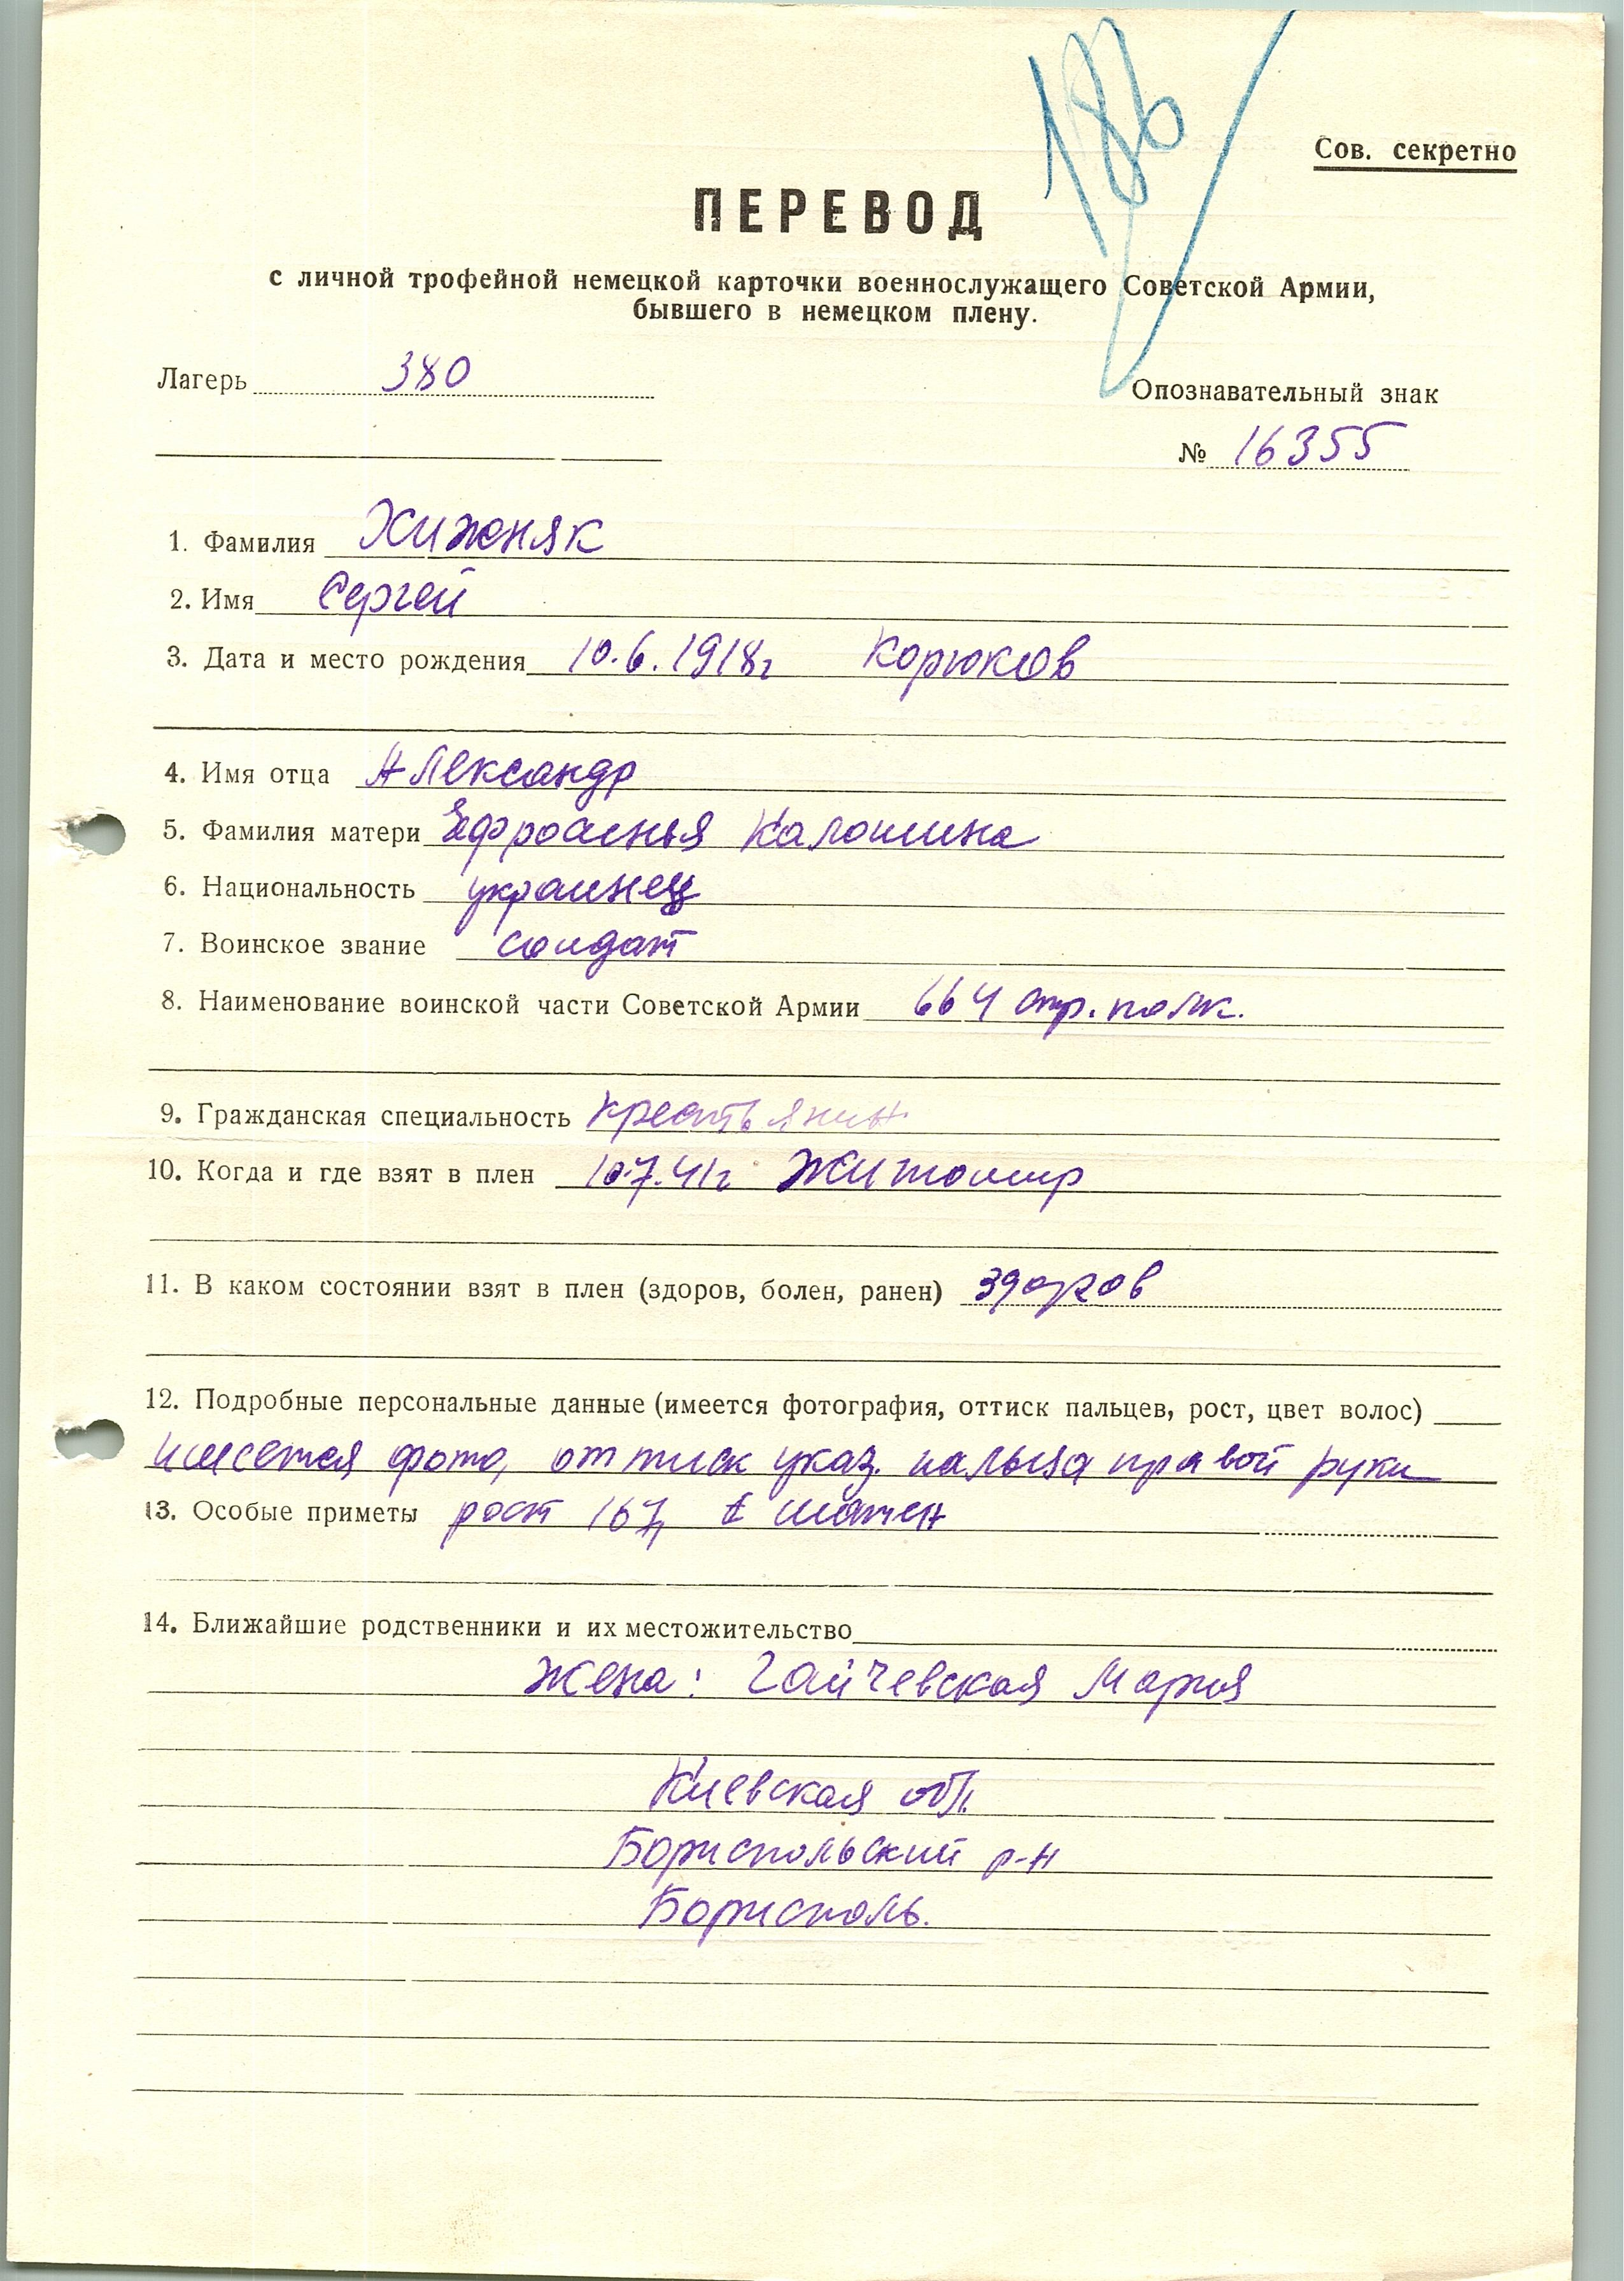 186
Сов. секретно
ПЕРЕВОД
с личной трофейной немецкой карточки военнослужащего Советской Армии,
бывшего в немецком плену.
Лагерь 380
Опознавательный знак
№ 16355
1. Фамилия Хижняк
2. Имя Сергей
3. Дата и место рождения 10.6.1918г Корюков
4. Имя отца Александр
5. Фамилия матери Ефросинья Калошина
6. Национальность украинец
7. Воинское звание солдат
8. Наименование воинской части Советской Армии 664 стр. полк.
9. Гражданская специальность крестьянин
10. Когда и где взят в плен 10.7.41г Житомир
11. В каком состоянии взят в плен (здоров, болен, ранен) здоров
12. Подробные персональные данные (имеется фотография, оттиск пальцев, рост, цвет волос)
имеется фото, оттиск указ. пальца правой руки
13. Особые приметы рост 167, шатен
14. Ближайшие родственники и их местожительство
Жена: Гайчевская Мария
Киевская обл.
Бориспольский р-н
Борисполь.